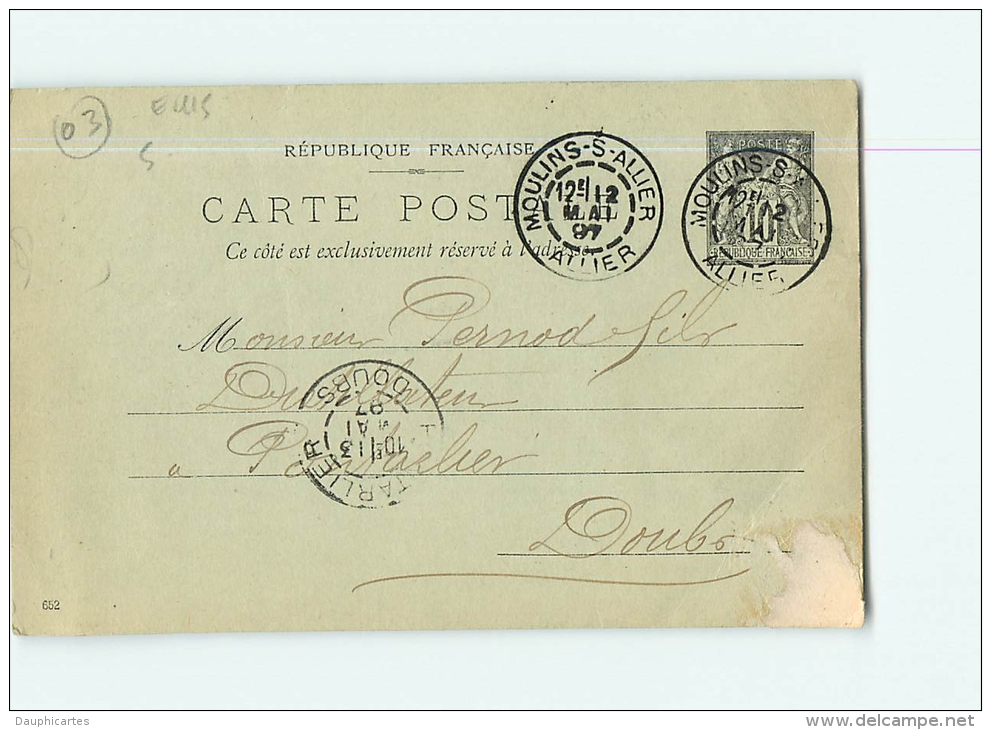 03
RÉPUBLIQUE FRANÇAISE
CARTE POST
Ce côté est exclusivement réservé à l'adresse
MOULINS-S-ALLIER
12E 12
MAI
97
ALLIER
POSTE
MOULINS-S-A
12E 12
10
REPUBLIQUE FRANÇAISE
ALLIER
Monsieur Pernod fils
Distillateur
à Pontarlier
Doubs
TARLIER
10E 13
MAI
97
DOUBS
652
Dauphicartes
delcampe.net